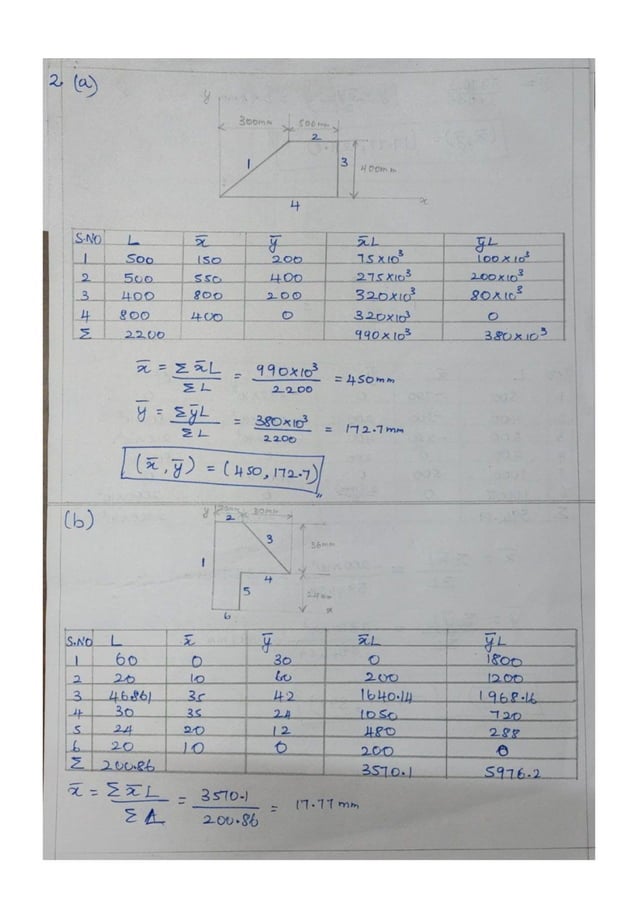 2 (a)
y
300mm 500mm
2
1 3 400mm
4 x
S.NO L x̄ ȳ x̄L ȳL
1 500 150 200 75×10³ 100×10³
2 500 550 400 275×10³ 200×10³
3 400 800 200 320×10³ 80×10³
4 800 400 0 320×10³ 0
Σ 2200 990×10³ 380×10³
x̄ = Σx̄L / ΣL = 990×10³ / 2200 = 450mm
ȳ = ΣȳL / ΣL = 380×10³ / 2200 = 172.7mm
(x̄, ȳ) = (450, 172.7)
(b)
y 30mm
2
3 36mm
1
4
5 24mm
6 x
S.NO L x̄ ȳ x̄L ȳL
1 60 0 30 0 1800
2 20 10 60 200 1200
3 46.861 35 42 1640.14 1968.16
4 30 35 24 1050 720
5 24 20 12 480 288
6 20 10 0 200 0
Σ 200.86 3570.1 5976.2
x̄ = Σx̄L / ΣL = 3570.1 / 200.86 = 17.77 mm